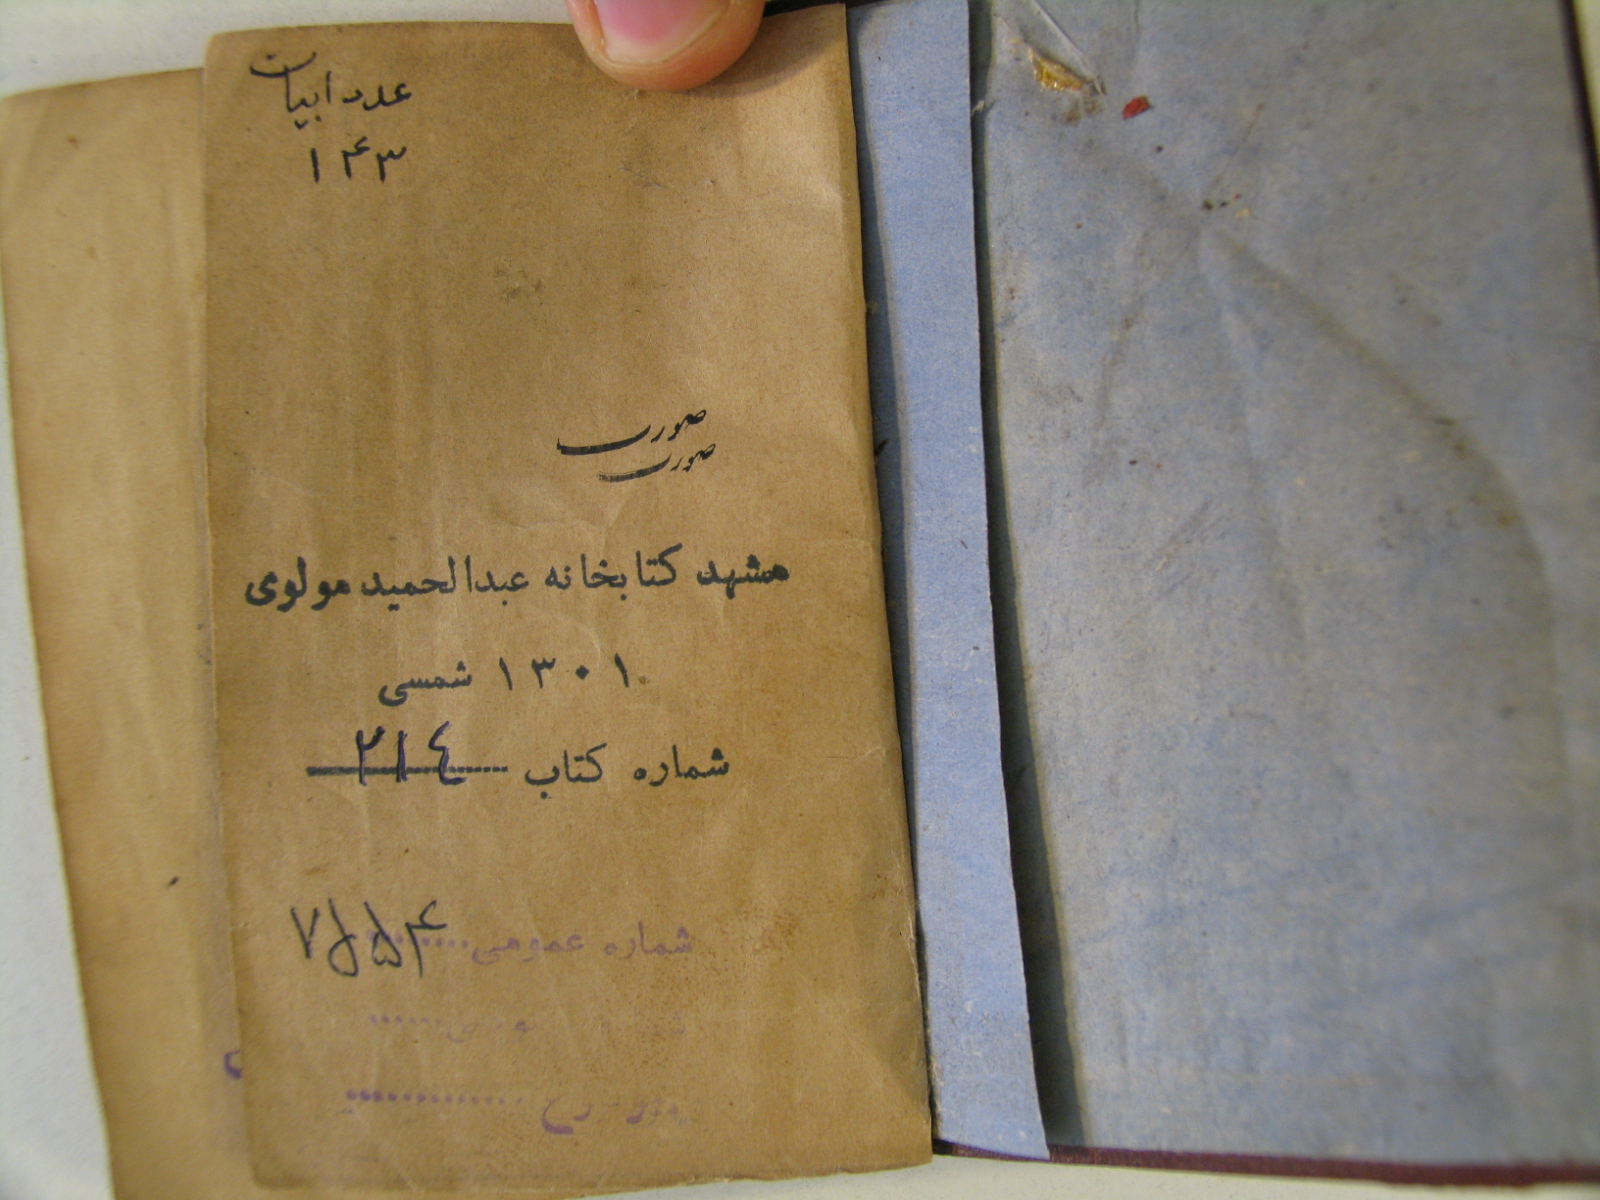 عدد ابیات
۱۴۳
صورت
صورت
مشهد کتابخانه عبدالحمید مولوی
۱۳۰۱ شمسی
شماره کتاب ۲۱٤
شماره عمومی